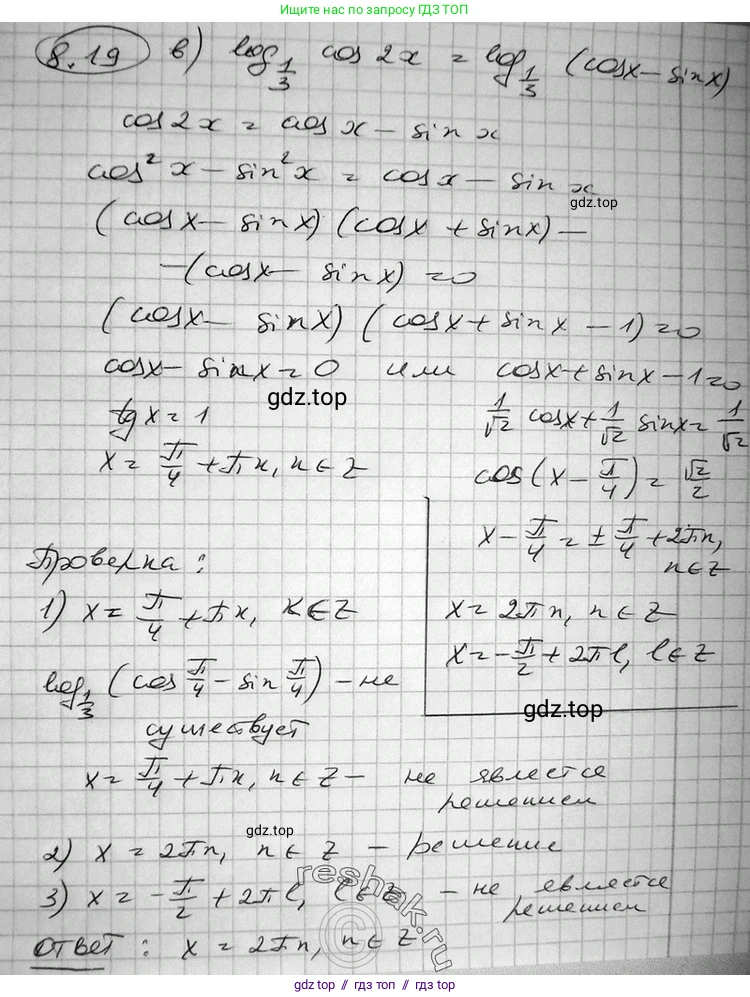 Найти верные ответы по запросу ГДЗ ТОП
8.19 в) log_{1/3} cos 2x = log_{1/3} (cosx - sinx)
cos2x = cos x - sin x
cos²x - sin²x = cosx - sin x
gdz.top
(cosx - sinx)(cosx + sinx) -
-(cosx - sinx) = 0
(cosx - sinx)(cosx + sinx - 1) = 0
cosx - sinx = 0 или cosx + sinx - 1 = 0
gdz.top
tgx = 1
1/√2 cosx + 1/√2 sinx = 1/√2
x = π/4 + πn, n ∈ Z
cos(x - π/4) = √2/2
x - π/4 = ± π/4 + 2πn,
n ∈ Z
x = 2πn, n ∈ Z
x = -π/2 + 2πl, l ∈ Z
gdz.top
Проверка:
1) x = π/4 + πк, к ∈ Z
log_{1/3} (cos π/4 - sin π/4) - не
существует
x = π/4 + πn, n ∈ Z - не является
решением
gdz.top
2) x = 2πn, n ∈ Z - решение
3) x = -π/2 + 2πl, l ∈ Z - не является
решением
reshak.ru
©
ответ: x = 2πn, n ∈ Z
gdz.top // гдз.топ // gdz.top // гдз.топ